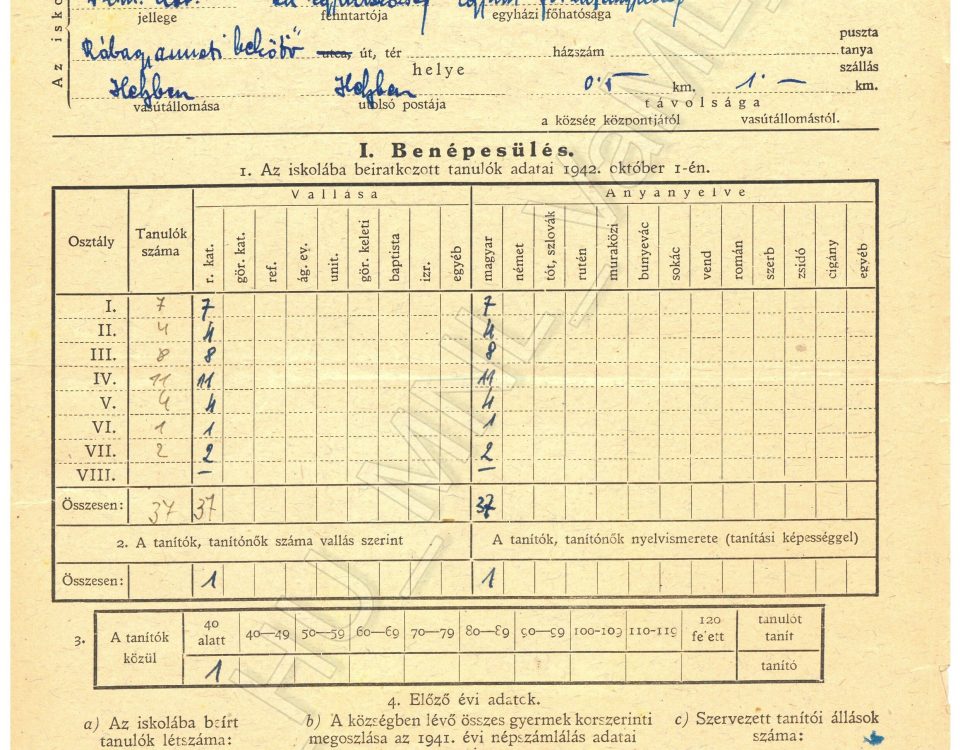 Az isko
jellege fenntartója egyházi főhatósága
bekötő utca, út, tér házszám puszta tanya szállás
helye
vasútállomása utolsó postája km. 1·— km.
távolsága
a község központjától vasútállomástól.
I. Benépesülés.
1. Az iskolába beiratkozott tanulók adatai 1942. október 1-én.
Osztály Tanulók száma Vallása Anyanyelve
r. kat. gör. kat. ref. ág. ev. unit. gör. keleti baptista izr. egyéb magyar német tót, szlovák rutén muraközi bunyevác sokác vend román szerb zsidó cigány egyéb
I. 7 7 7
II. 4 4 4
III. 8 8 8
IV. 11 11 11
V. 4 4 4
VI. 1 1 1
VII. 2 2 2
VIII. — —
Összesen: 37 37 37
2. A tanítók, tanítónők száma vallás szerint A tanítók, tanítónők nyelvismerete (tanítási képességgel)
Összesen: 1 1
3. A tanítók közül 40 alatt 40—49 50—59 60—69 70—79 80—89 90—99 100-109 110-119 120 felett tanulót tanít
1 tanító
4. Előző évi adatek.
a) Az iskolába beírt b) A községben lévő összes gyermek korszerinti c) Szervezett tanítói állások
tanulók létszáma: megoszlása az 1941. évi népszámlálás adatai száma:
HU_MNL_VaML